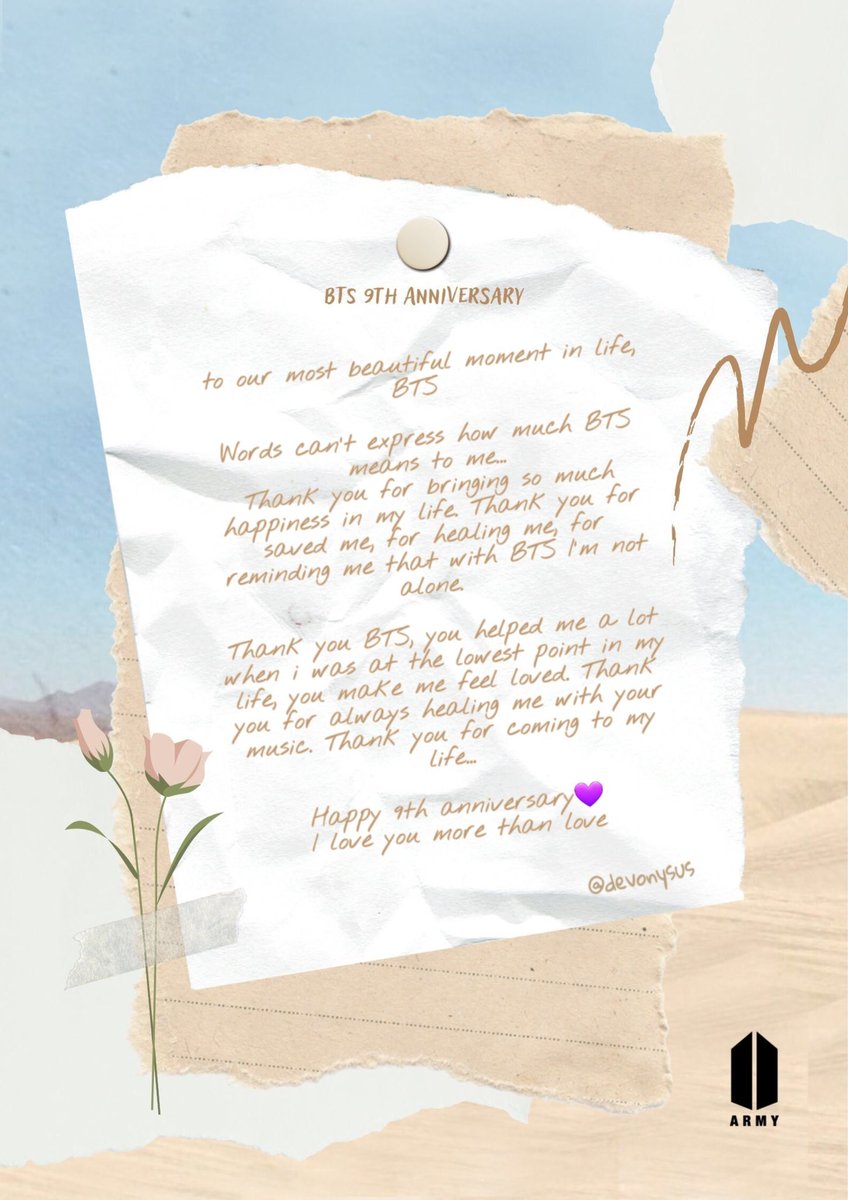 BTS 9TH ANNIVERSARY
to our most beautiful moment in life,
BTS
Words can't express how much BTS
means to me...
Thank you for bringing so much
happiness in my life. Thank you for
saved me, for healing me, for
reminding me that with BTS I'm not
alone.
Thank you BTS, you helped me a lot
when i was at the lowest point in my
life, you make me feel loved. Thank
you for always healing me with your
music. Thank you for coming to my
life...
Happy 9th anniversary💜
I love you more than love
@devonysus
ARMY